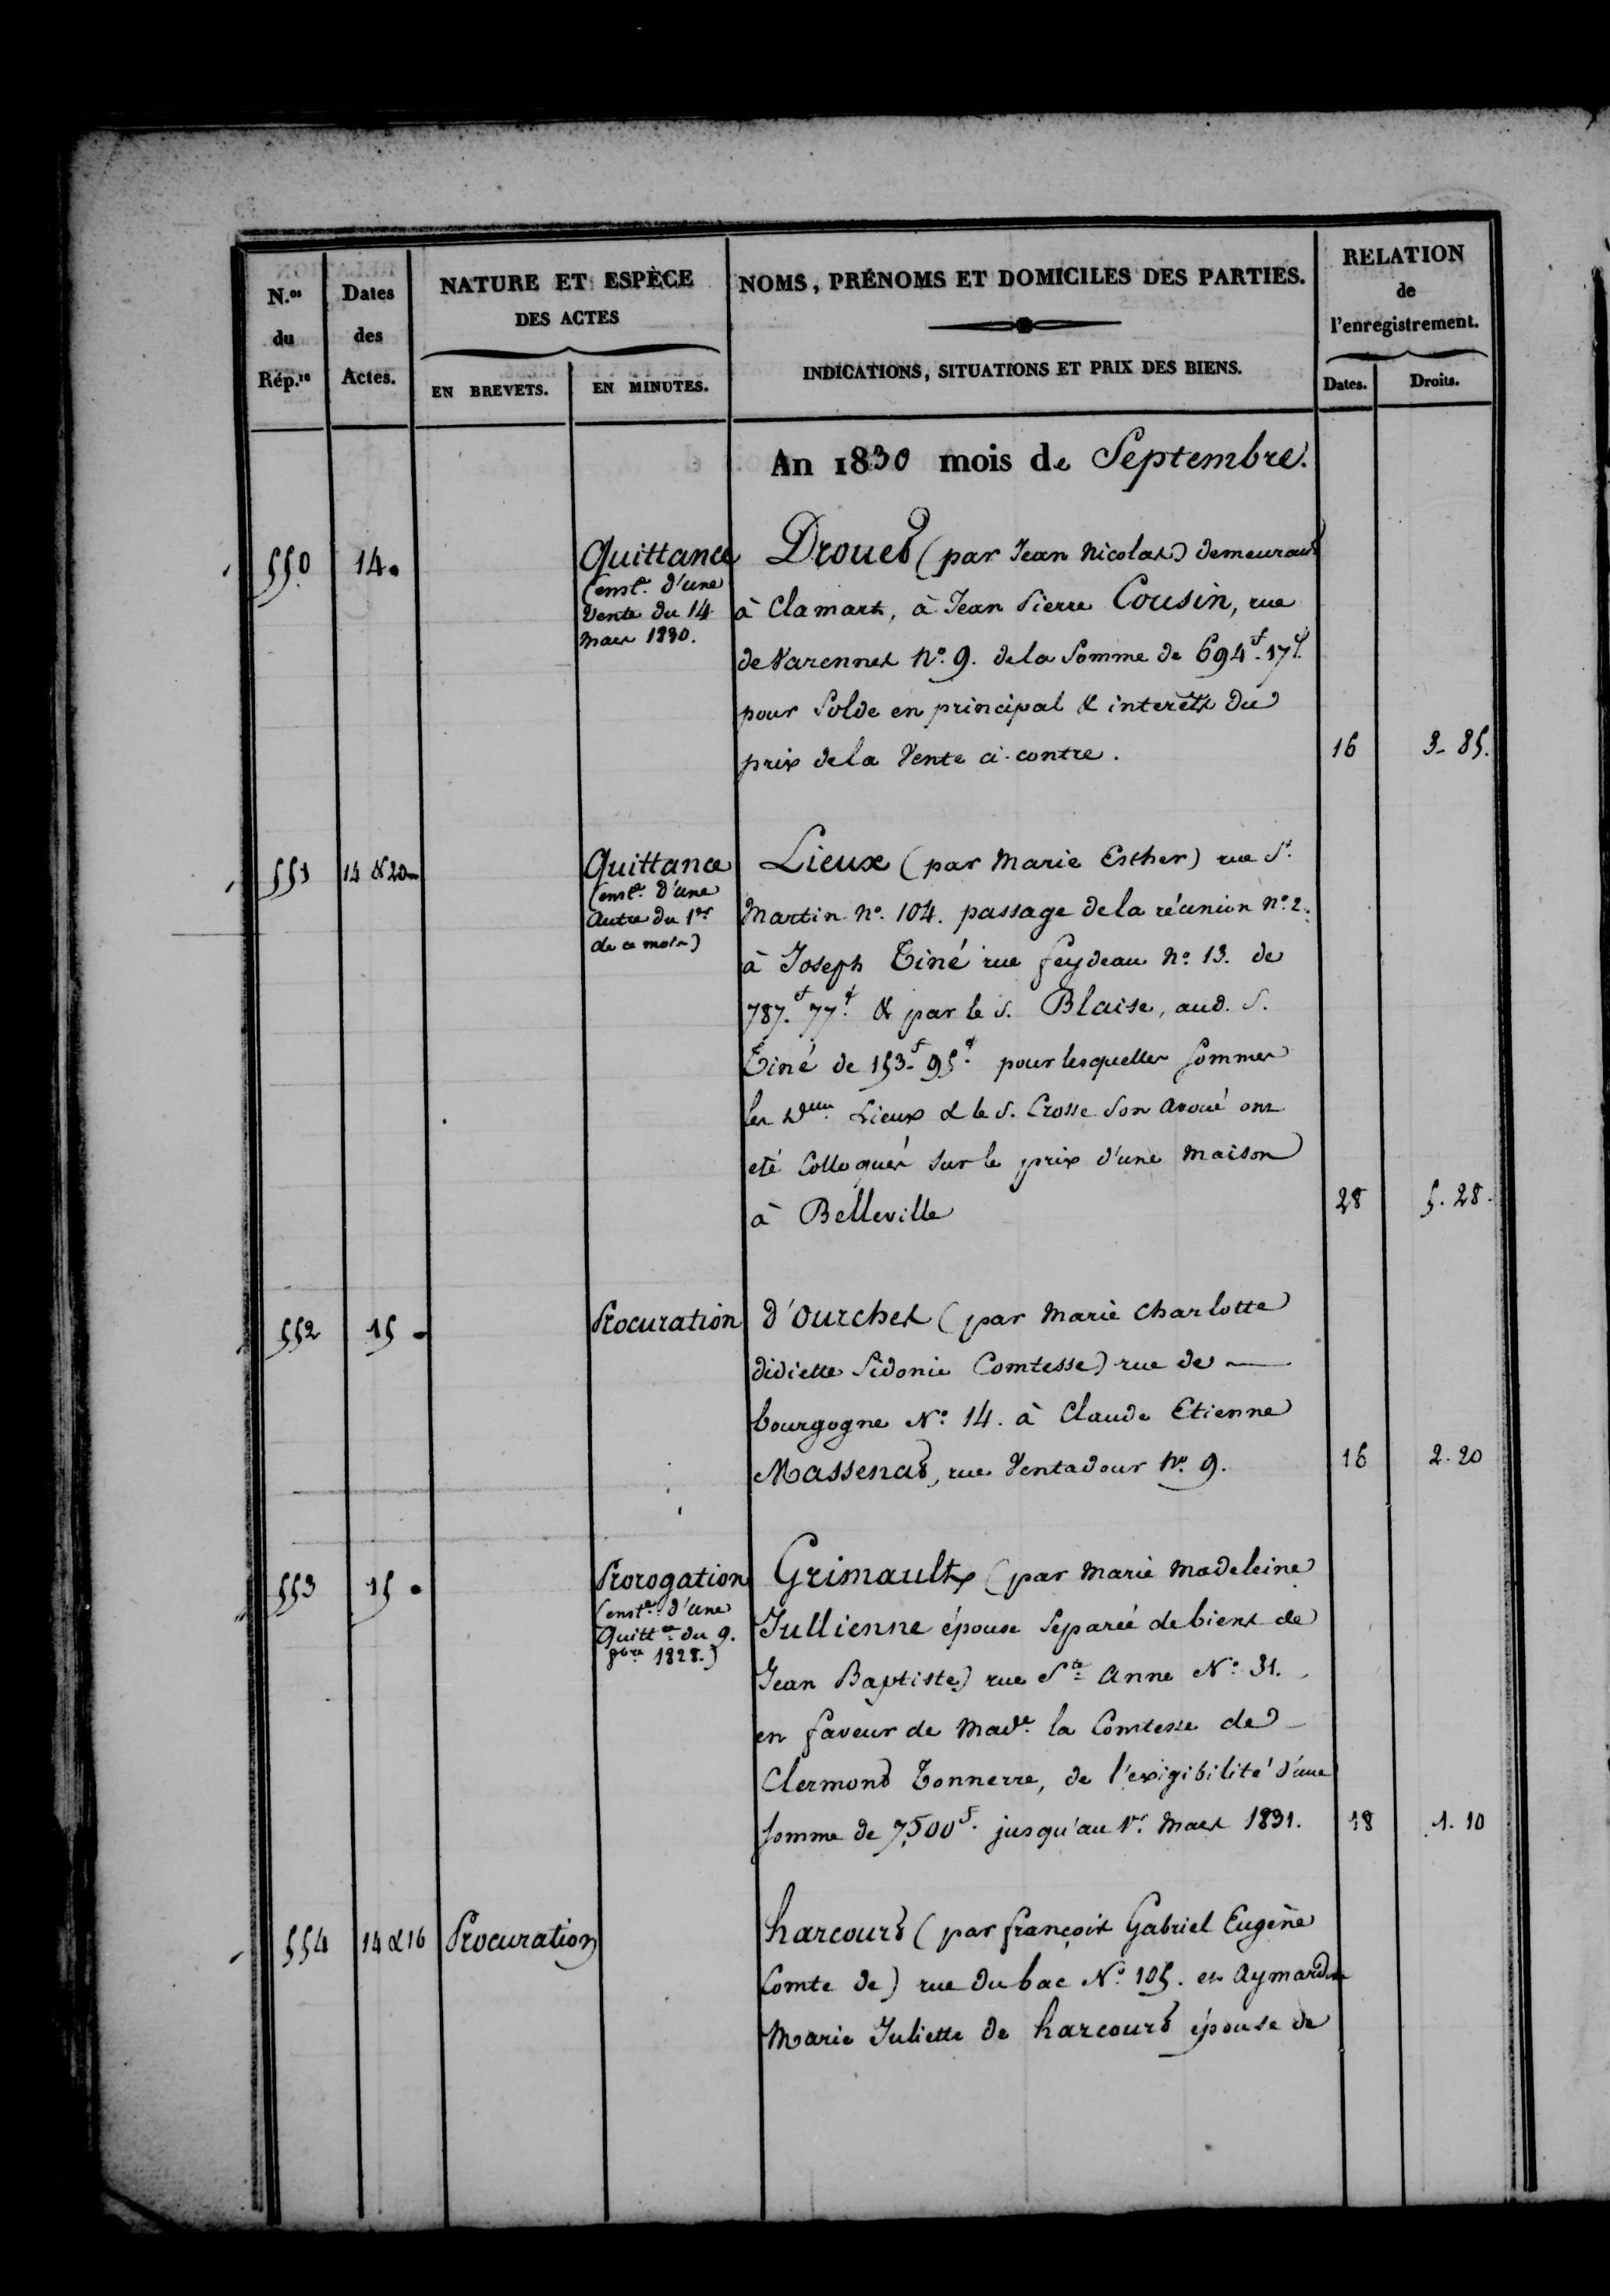 N.os du Rép.re
Dates des Actes.
NATURE ET ESPÈCE
DES ACTES
EN BREVETS.
EN MINUTES.
NOMS, PRÉNOMS ET DOMICILES DES PARTIES.
INDICATIONS, SITUATIONS ET PRIX DES BIENS.
RELATION
de
l'enregistrement.
Dates.
Droits.
An 1830 mois de Septembre.
550
14.
Quittance
(enste. d'une
Vente du 14
mars 1830.
Drouet (par Jean Nicolas) demeurant
à Clamart, à Jean Pierre Cousin, rue
de Varennes No. 9. de la Somme de 694f. 17c.
pour Solde en principal & interêts du
prix de la Vente ci-contre.
16
3-85.
551
14 & 20
Quittance
(enste. d'une
autre du 1er
de ce mois)
Lieux (par Marie Esther) rue St.
Martin no. 104. passage de la réunion no. 2.
à Joseph Tiné rue feydeau No. 13. de
787.f 77c. & par le S. Blaise, aud. S.
Tiné de 153-f 95c. pour lesquelles Sommes
les Delle. Lieux & le S. Crosse Son avoué ont
eté Colloqués sur le prix d'une Maison
à Belleville
28
5.28.
552
15
Procuration
d'Ourches (par Marie Charlotte
didiette Sidonie Comtesse) rue de
bourgogne No. 14. à Claude Etienne
Massenat, rue Ventadour No. 9.
16
2.20
553
15.
Prorogation
(enste. d'une
Quittce. du 9.
8bre 1828.)
Grimault (par Marie Madeleine
Jullienne épouse Separée de biens de
Jean Baptiste) rue Ste. Anne No. 31.
en faveur de Made. la Comtesse de
Clermont Tonnerre, de l'exigibilité d'une
Somme de 7,500f. jusqu'au 1er. Mars 1831.
18
1.10
554
14 & 16
Procuration
harcourt (par françois Gabriel Eugène
Comte de) rue du bac No. 105. et Aymardine
Marie Juliette de harcourt épouse de